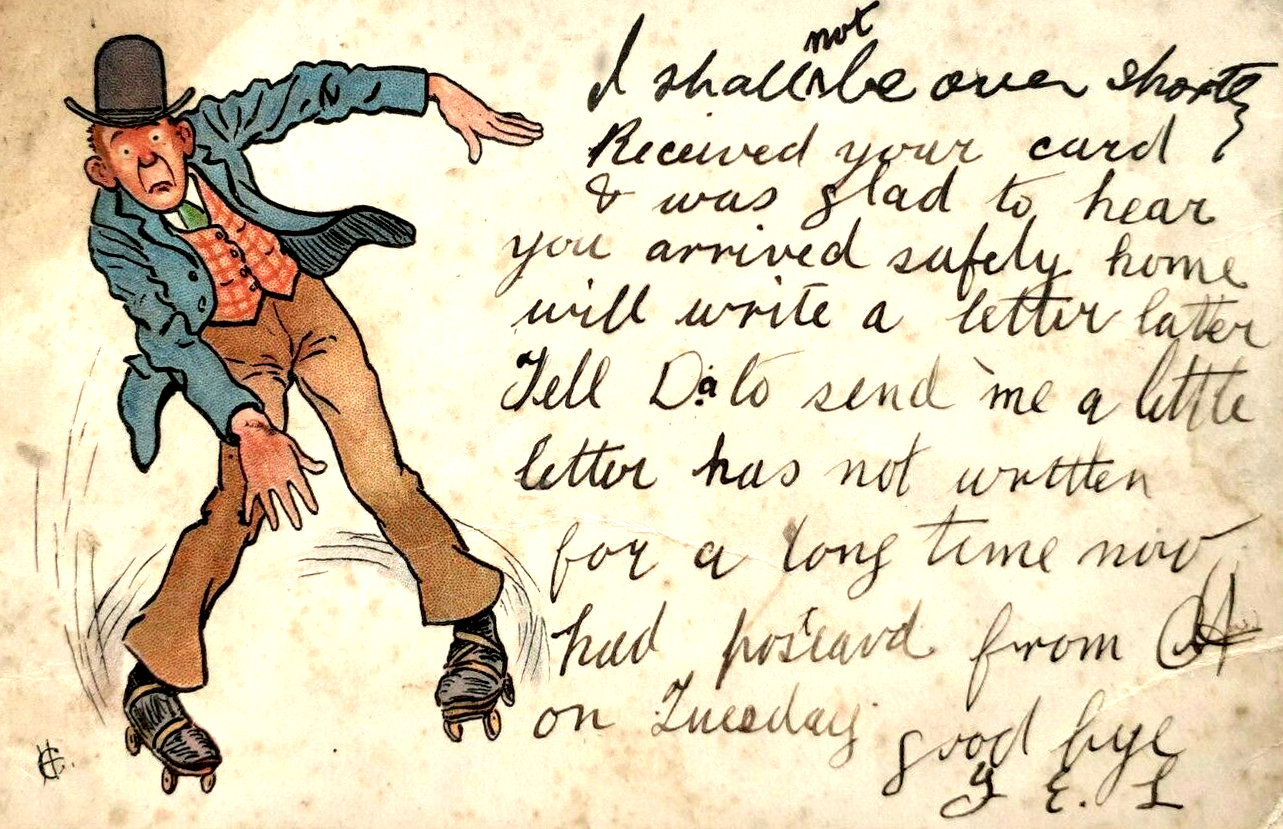 I shall not be over shortly
Received your card
& was glad to hear
you arrived safely home
will write a letter later
Tell Da to send me a little
letter has not written
for a long time now
had postcard from A
on Tuesday
good bye
E. L